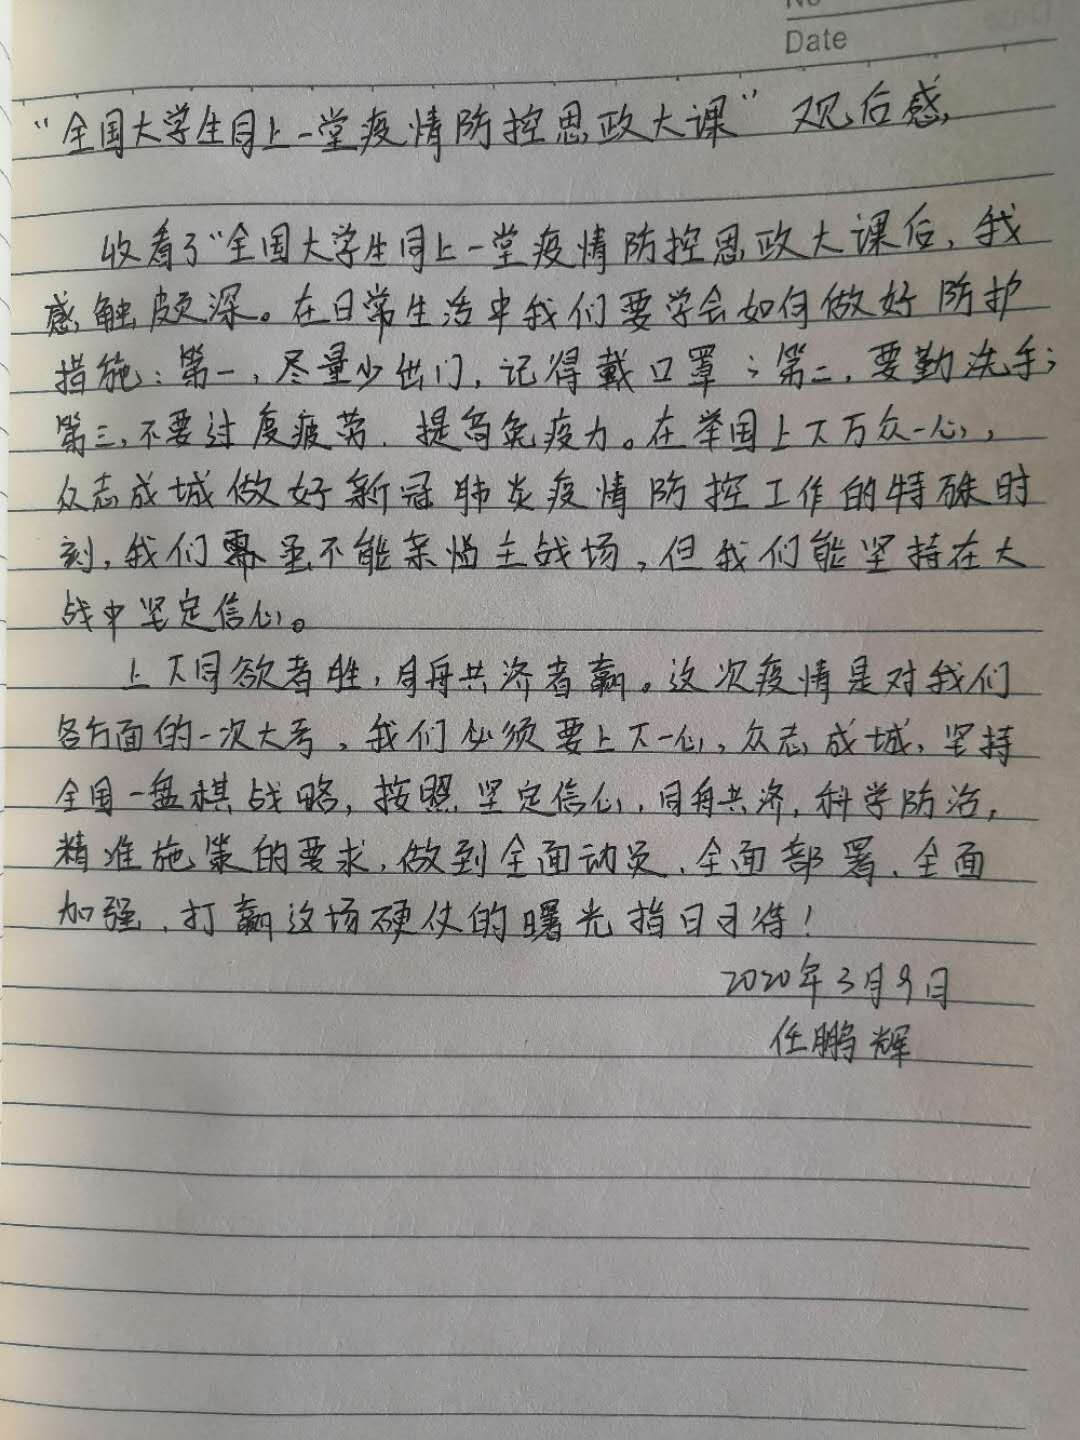 No
Date
“全国大学生同上一堂疫情防控思政大课” 观后感
收看了“全国大学生同上一堂疫情防控思政大课后，我
感触颇深。在日常生活中我们要学会如何做好防护
措施：第一，尽量少出门，记得戴口罩；第二，要勤洗手；
第三，不要过度疲劳，提高免疫力。在举国上下万众一心，
众志成城做好新冠肺炎疫情防控工作的特殊时
刻，我们虽不能亲临主战场，但我们能坚持在大
战中坚定信心。
上下同欲者胜，同舟共济者赢。这次疫情是对我们
各方面的一次大考，我们必须要上下一心，众志成城，坚持
全国一盘棋战略，按照坚定信心，同舟共济，科学防治，
精准施策的要求，做到全面动员、全面部署、全面
加强，打赢这场硬仗的曙光指日可待！
2020年3月9日
任鹏辉